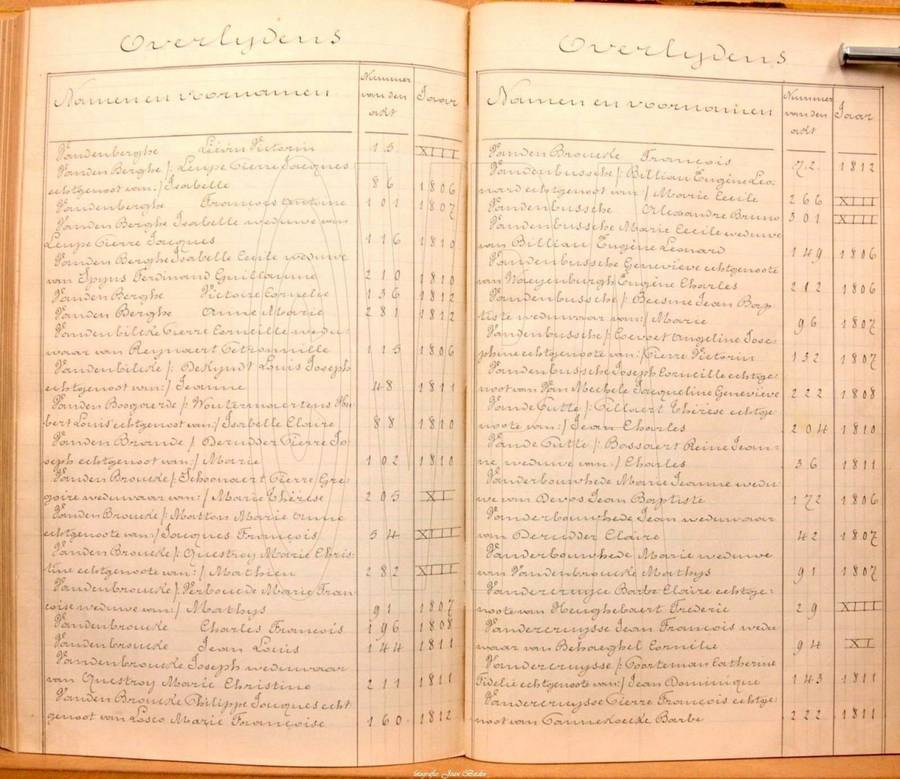 Overlydens
Namen en voornamen
Nummer
van den
akt
Jaar
Vandenberghe Liévin Victorin 15 XIII
Vanden Berghe /: Leupe Pierre Jacques
echtgenoot van:/ Isabelle 86 1806
Vandenberghe François Antoine 101 1807
Vanden Berghe Isabelle weduwe van
Leupe Pierre Jacques 116 1810
Vanden Berghe Isabelle Cecile weduwe
van Ferdinand Guillaume 210 1810
Vanden Berghe Victoire Cornelie 136 1812
Vanden Berghe Anne Marie 281 1812
Vandenbilcke Pierre Corneille wedu-
waar van Reynaert Petronnille 115 1806
Vandenbilcke /: Dekyndt Louis Joseph
echtgenoot van:/ Jeanne 48 1811
Vanden Bosgaerde /: Woutermaertens Hu
bert Louis echtgenoot van:/ Isabelle Claire 88 1810
Vanden Brande /: Derudder Pierre Jo
seph echtgenoot van:/ Marie 102 1810
Vanden Broucke /: Schoonaert Pierre Gre
goire weduwaar van:/ Marie Thérèse 205 XI
Vanden Broucke /: Matton Marie Anne
echtgenote van:/ Jacques François 54 XIII
Vanden Broucke /: Questroy Marie Chris-
tine echtgenote van:/ Mathieu 282 XIII
Vandenbroucke /: Verboucke Marie Fran
coise weduwe van:/ Mathys 91 1807
Vandenbroucke Charles François 196 1808
Vandenbroucke Jean Louis 144 1811
Vandenbroucke Joseph weduwaar
van Questroy Marie Christine 211 1811
Vanden Broucke Philippe Jacques echt
genoot van Losco Marie Françoise 160 1812
Overlydens
Namen en voornamen
Nummer
van den
akt
Jaar
Vanden Broucke François 72 1812
Vandenbussche /: Billiau Eugène Leo-
nard echtgenoot van:/ Marie Cecile 266 XIII
Vandenbussche Alexandre Bruno 301 XIII
Vandenbussche Marie Cecile weduwe
van Billiau Eugène Leonard 149 1806
Vandenbussche Geneviève echtgenote
van Waeyenburgh Eugène Charles 212 1806
Vandenbussche /: Beesme Jean Bap
tiste weduwaar van:/ Marie 96 1807
Vandenbussche /: Coevoet Angeline Jose-
phine echtgenote van:/ Pierre Victorin 132 1807
Vandenbussche Joseph Corneille echtge-
noot van Van Mechele Jacqueline Geneviève 222 1808
Vande Putte /: Pillaert Thérèse echtge-
note van:/ Jean Charles 204 1810
Vande Putte /: Bossaert Reine Jean-
ne weduwe van:/ Charles 36 1811
Vanderbouwhede Marie Jeanne wedu
we van Devos Jean Baptiste 172 1806
Vanderbouwhede Jean weduwaar
van Derudder Claire 42 1807
Vanderbouwhede Marie weduwe
van Vandenbroucke Mathys 91 1807
Vandercruyce Barbe Claire echtge-
note van Heughebaert Frederic 29 XIII
Vandercruysse Jean François wedu
waar van Behaeghel Cornilie 94 XI
Vandercruysse /: Poorteman Catherine
Fidelie echtgenote van:/ Jean Dominique 143 1811
Vandercruysse Pierre François echtge-
noot van Pannekoecke Barbe 222 1811